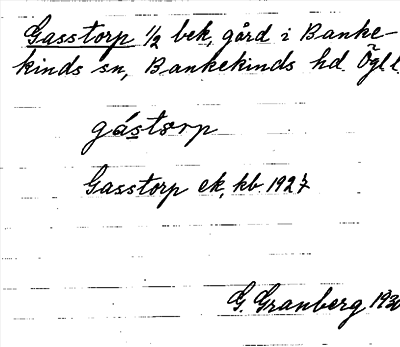 Gasstorp 1/2 bek, gård i Banke-
kinds sn, Bankekinds hd. Ögl l.
gástorp
Gasstorp ek, kb. 1927
G. Granberg 1930